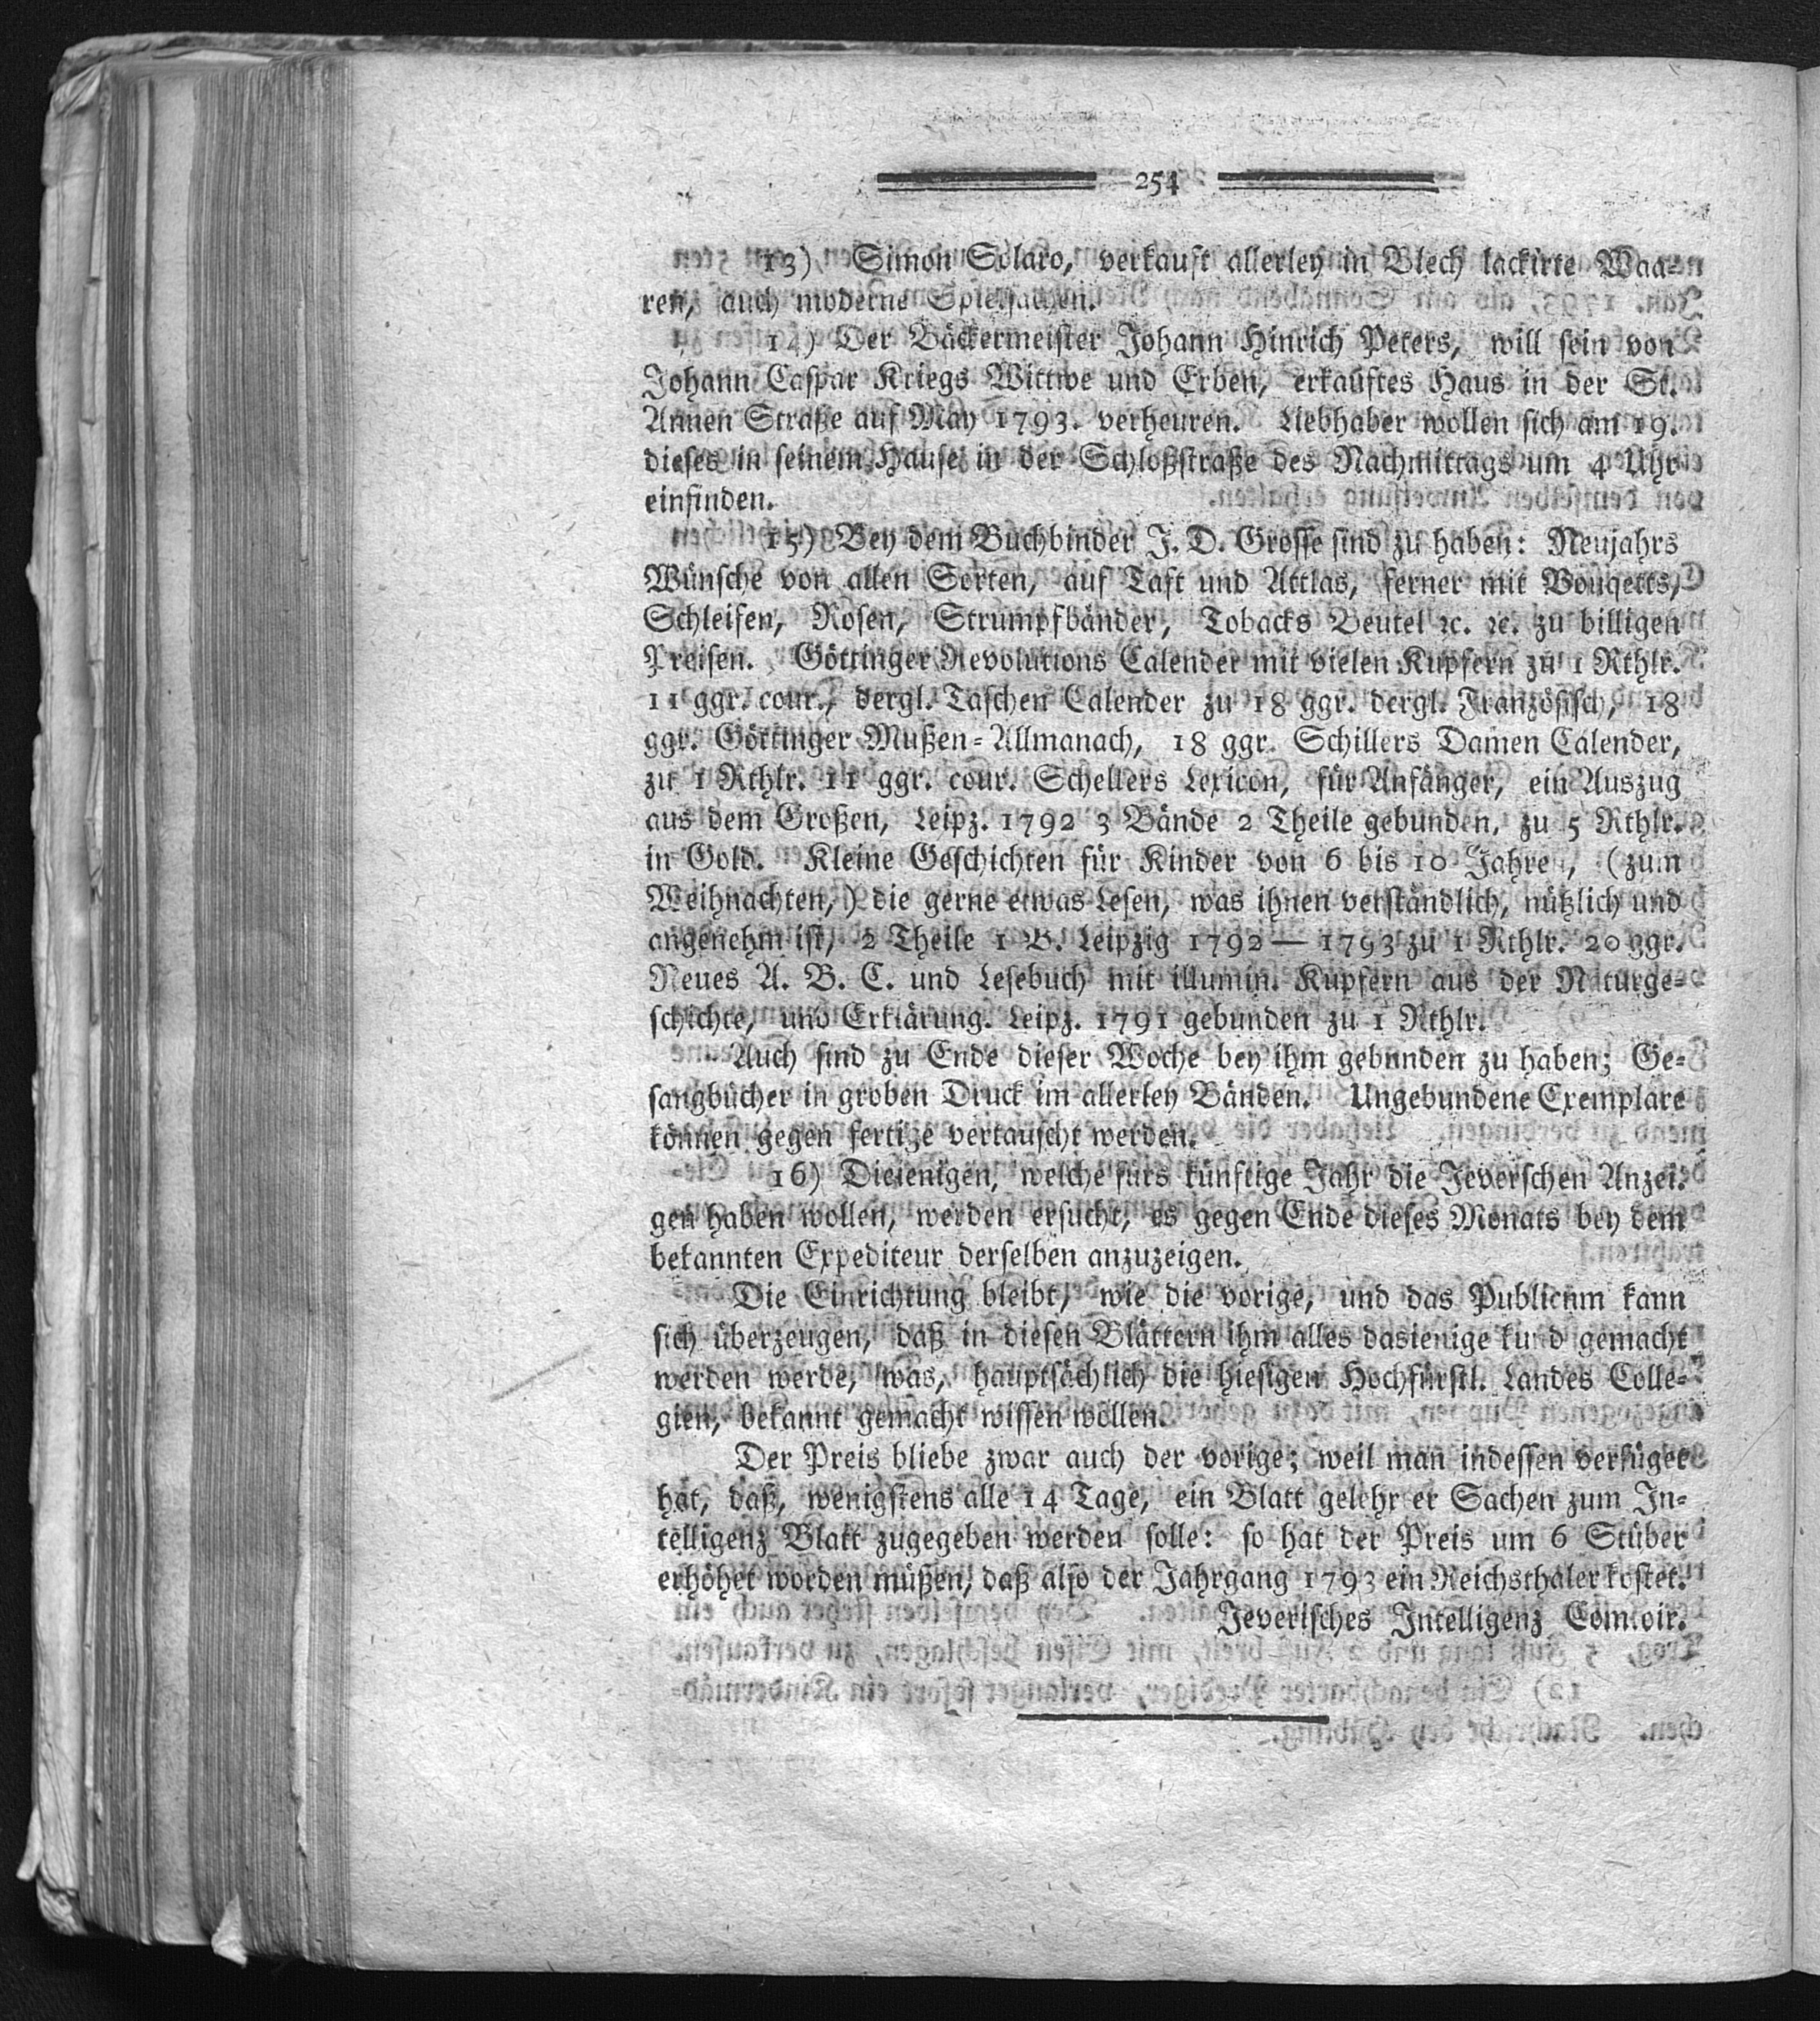 254
13) Simon Solaro, verkauft allerley in Blech lackirte Waa-
ren, auch moderne Spielsachen.
14) Der Bäckermeister Johann Hinrich Peters, will sein von
Johann Caspar Kriegs Wittwe und Erben, erkauftes Haus in der St.
Annen Straße auf May 1793. verheuren. Liebhaber wollen sich am 19.
dieses in seinem Hause in der Schloßstraße des Nachmittags um 4 Uhr
einfinden.
15) Bey dem Buchbinder J. D. Grosse sind zu haben: Neujahrs
Wünsche von allen Sorten, auf Taft und Attlas, ferner mit Bouqetts,
Schleifen, Rosen, Strumpfbänder, Tobacks Beutel ꝛc. ꝛc. zu billigen
Preisen. Göttinger Revolutions Calender mit vielen Kupfern zu 1 Rthlr.
11 ggr. cour., dergl. Taschen Calender zu 18 ggr. dergl. Französisch, 18
ggr. Göttinger Mußen-Allmanach, 18 ggr. Schillers Damen Calender,
zu 1 Rthlr. 11 ggr. cour. Schellers Lexicon, für Anfänger, ein Auszug
aus dem Großen, Leipz. 1792 3 Bände 2 Theile gebunden, zu 5 Rthlr.
in Gold. Kleine Geschichten für Kinder von 6 bis 10 Jahren, (zum
Weihnachten,) die gerne etwas Lesen, was ihnen verständlich, nützlich und
angenehm ist, 2 Theile 1 B. Leipzig 1792 — 1793 zu 1 Rthlr. 20 ggr.
Neues A. B. C. und Lesebuch mit illumin. Kupfern aus der Naturge-
schichte, und Erklärung. Leipz. 1791 gebunden zu 1 Rthlr.
Auch sind zu Ende dieser Woche bey ihm gebunden zu haben; Ge-
sangbücher in groben Druck im allerley Bänden. Ungebundene Exemplare
können gegen fertige vertauscht werden.
16) Diejenigen, welche fürs künftige Jahr die Jeverschen Anzei-
gen haben wollen, werden ersucht, es gegen Ende dieses Monats bey dem
bekannten Expediteur derselben anzuzeigen.
Die Einrichtung bleibt, wie die vorige, und das Publicum kann
sich überzeugen, daß in diesen Blättern ihm alles dasienige kund gemacht
werden werde, was, hauptsächlich die hiesigen Hochfürstl. Landes Colle-
gien, bekannt gemacht wissen wollen.
Der Preis bliebe zwar auch der vorige; weil man indessen verfüget
hat, daß, wenigstens alle 14 Tage, ein Blatt gelehrter Sachen zum In-
telligenz Blatt zugegeben werden solle: so hat der Preis um 6 Stüber
erhöhet worden müßen, daß also der Jahrgang 1793 ein Reichsthaler kostet.
Jeverisches Intelligenz Comtoir.